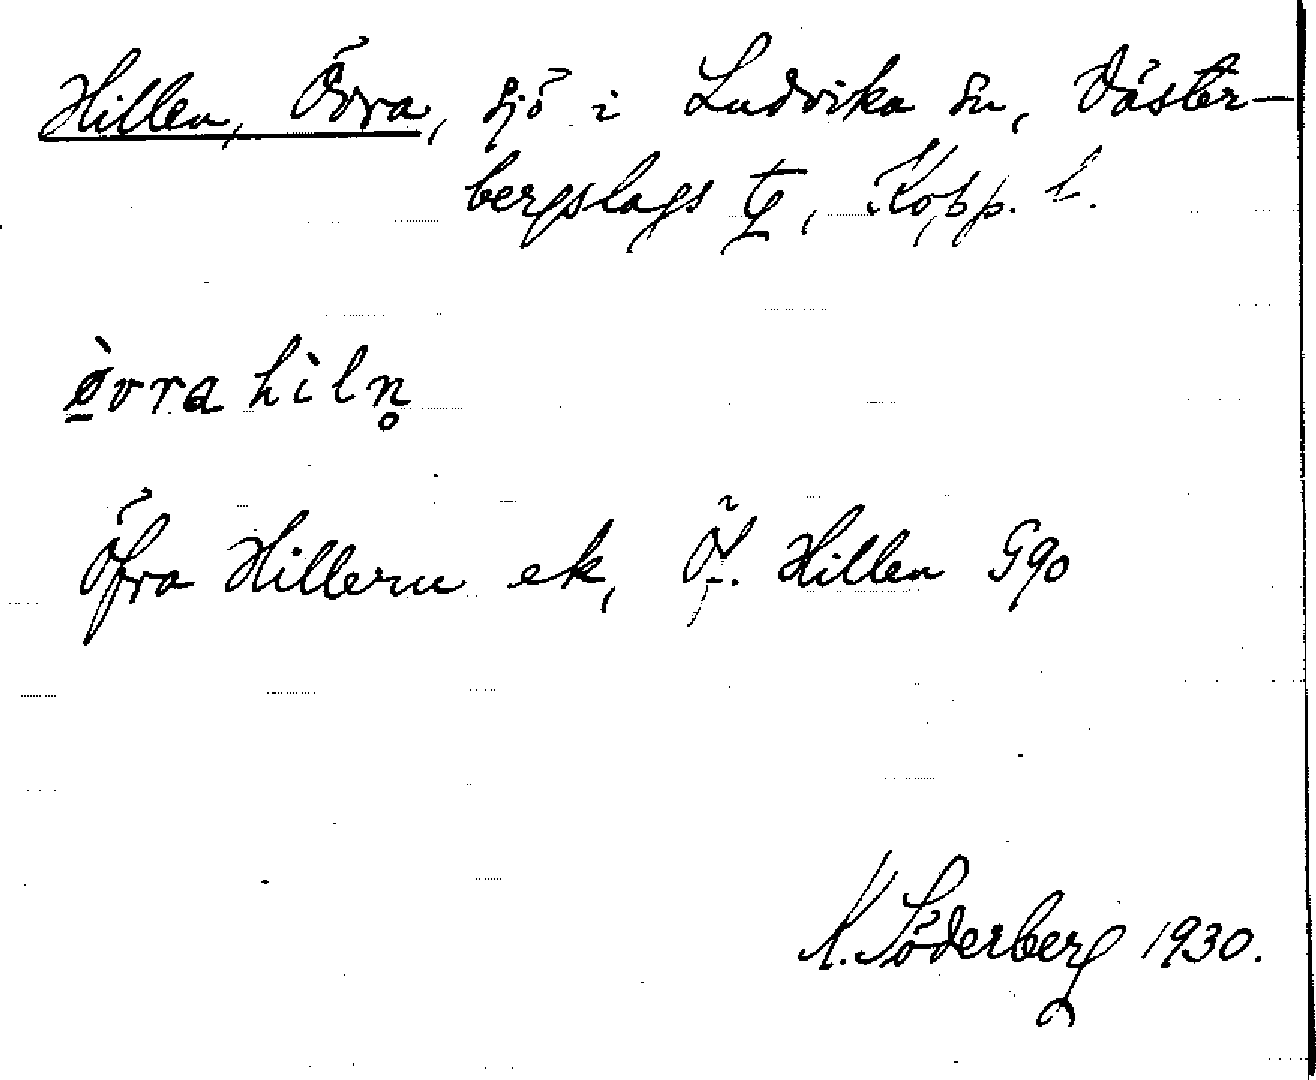 Hillen, Övra, sjö i Ludvika sn, Väster-
bergslags tg, Kopp. l.
ø̠̀vra hìln̥
Öfra Hillern ek, Ö. Hillen Ggo
K. Söderberg 1930.